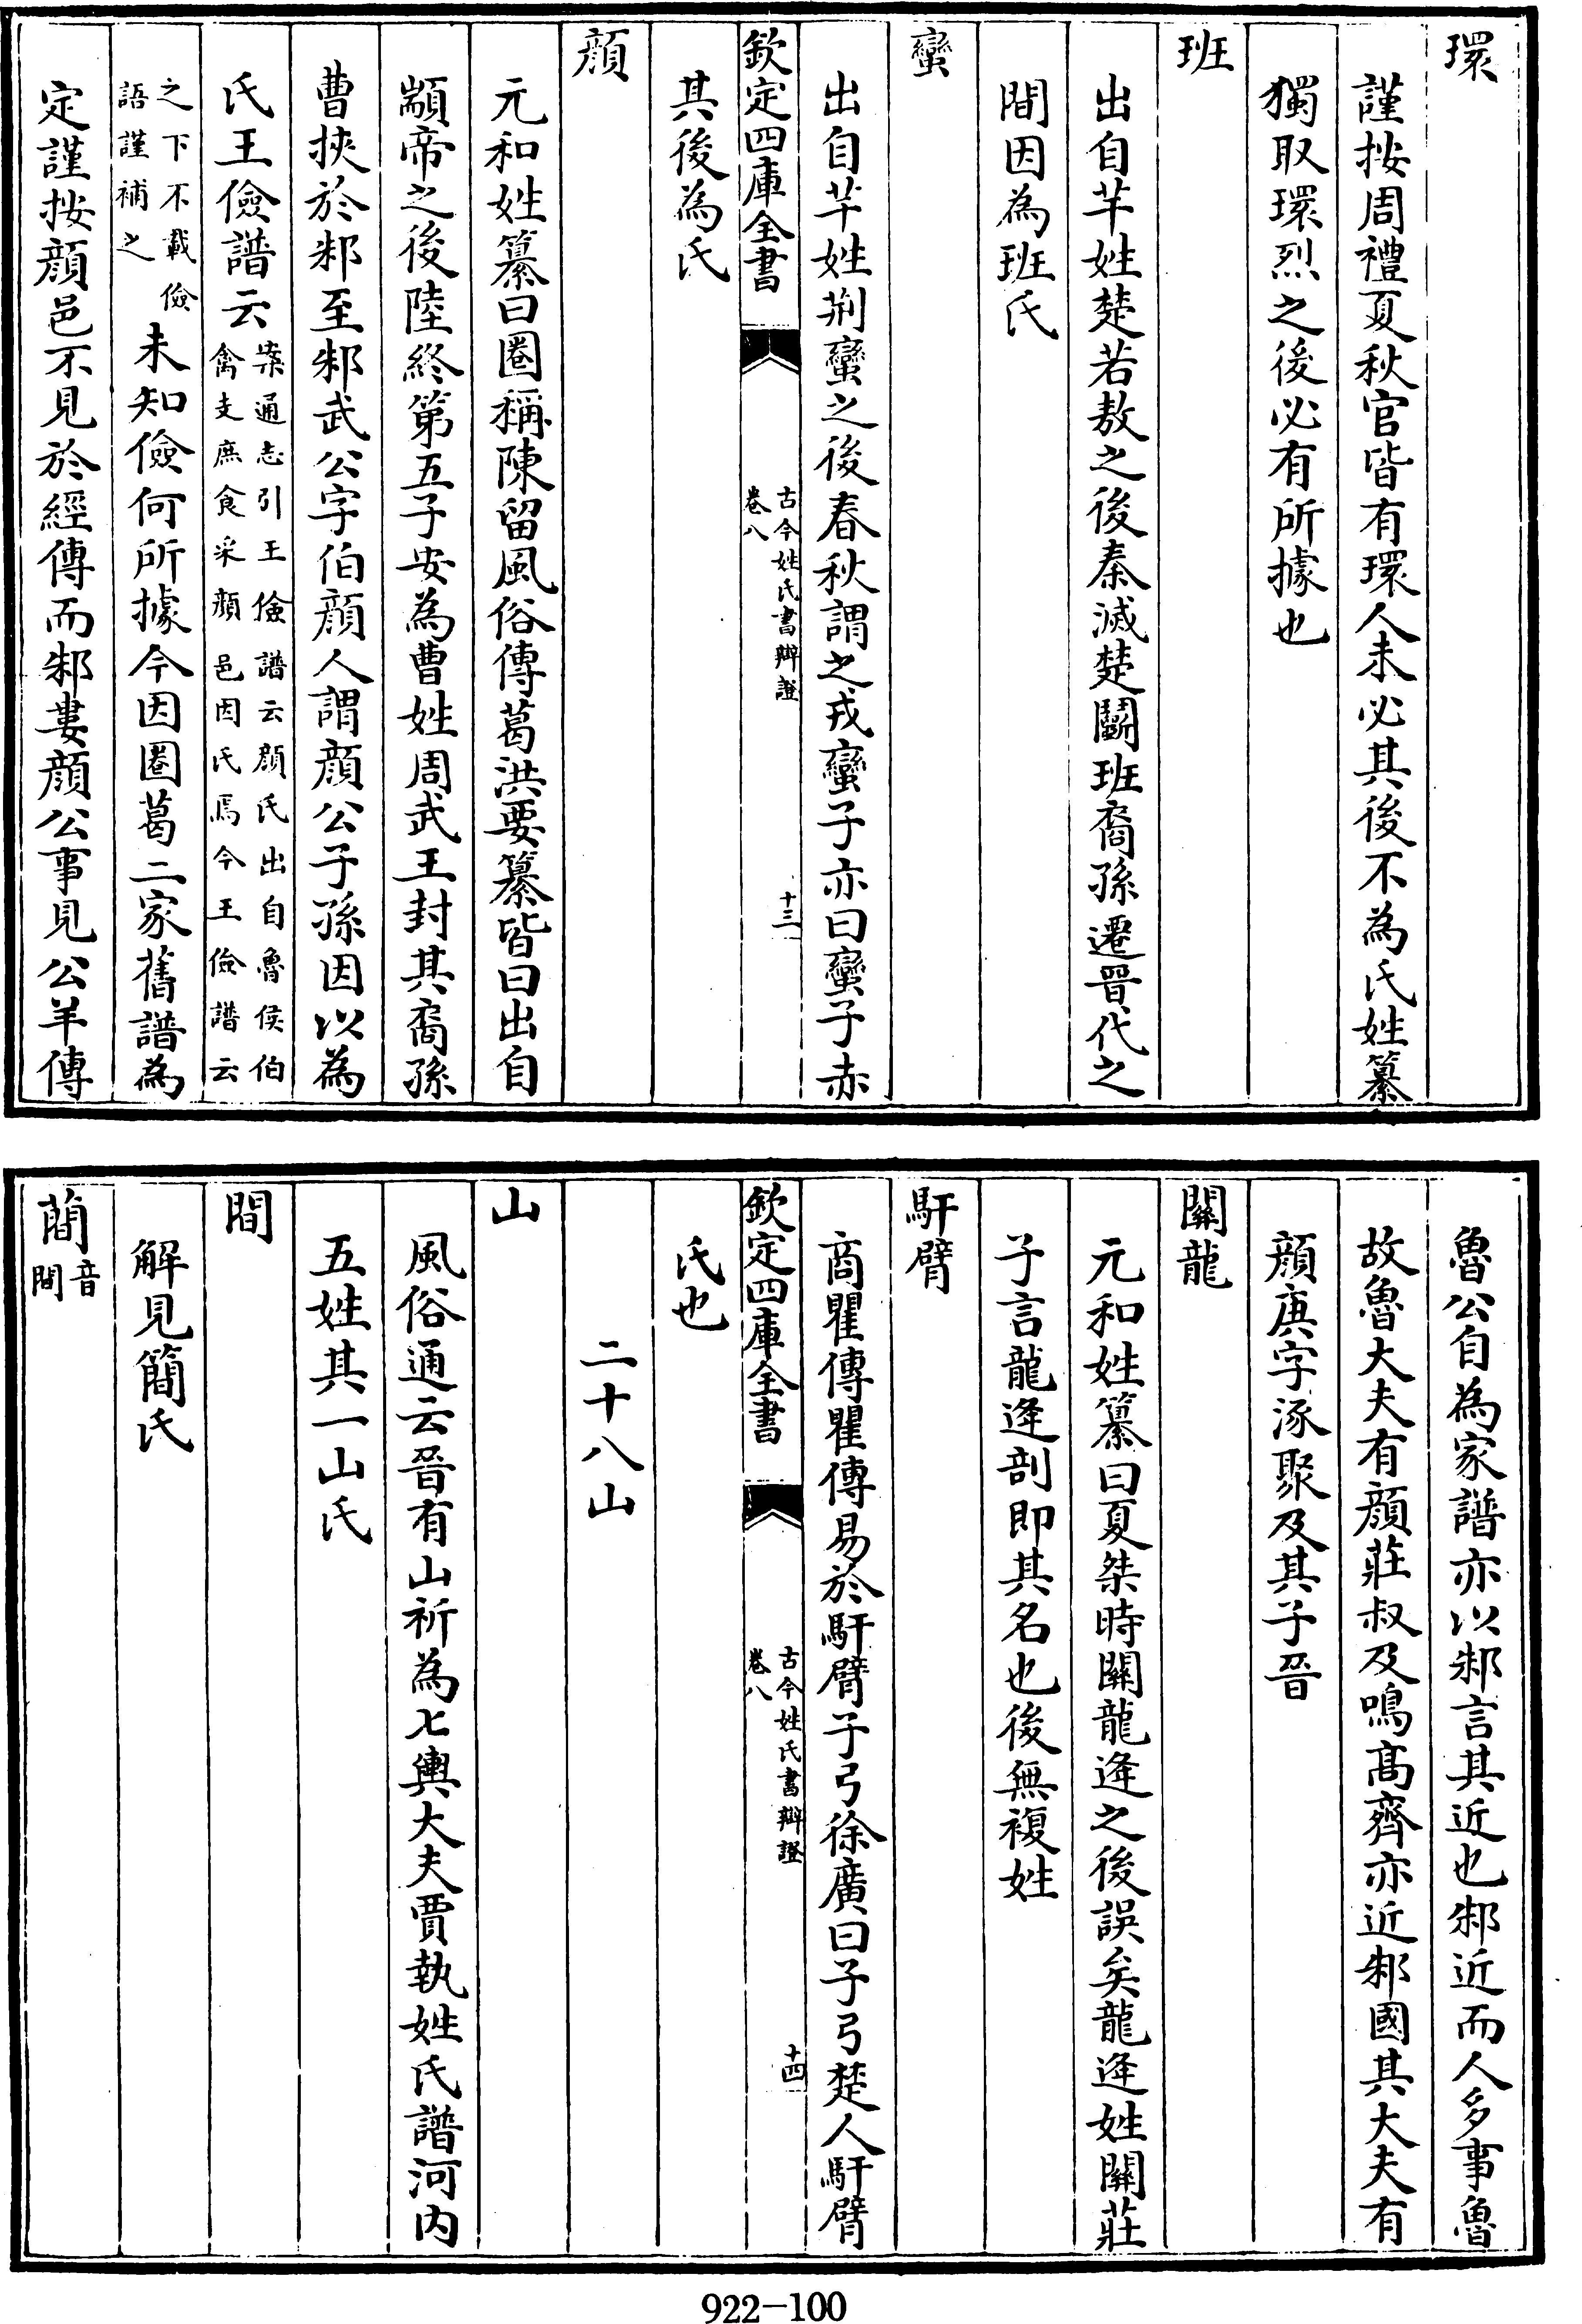 環
謹按周禮夏秋官皆有環人未必其後不為氏姓纂
獨取環烈之後必有所據也
班
出自芈姓楚若敖之後秦滅楚鬬班裔孫遷晉代之
間因為班氏
蠻
出自芈姓荆蠻之後春秋謂之戎蠻子亦曰蠻子赤
欽定四庫全書
古今姓氏書辯證
卷八
十三
其後為氏
顔
元和姓纂曰圈稱陳留風俗傳葛洪要纂皆曰出自
顓帝之後陸終第五子安為曹姓周武王封其裔孫
曹挾於邾至邾武公字伯顔人謂顔公子孫因以為
氏王儉譜云案通志引王儉譜云顔氏出自魯侯伯
禽支庶食采顔邑因氏焉今王儉譜云
之下不載儉
語謹補之未知儉何所據今因圈葛二家舊譜為
定謹按顔邑不見於經傳而邾婁顔公事見公羊傳
魯公自為家譜亦以邾言其近也邾近而人多事魯
故魯大夫有顔莊叔及鳴高齊亦近邾國其大夫有
顔庚字涿聚及其子晉
關龍
元和姓纂曰夏桀時關龍逄之後誤矣龍逄姓關莊
子言龍逄剖即其名也後無複姓
馯臂
商瞿傳瞿傳易於馯臂子弓徐廣曰子弓楚人馯臂
欽定四庫全書
古今姓氏書辯證
卷八
十四
氏也
二十八山
山
風俗通云晉有山祈為七輿大夫賈執姓氏譜河内
五姓其一山氏
間
解見簡氏
蕑音
間
922-100